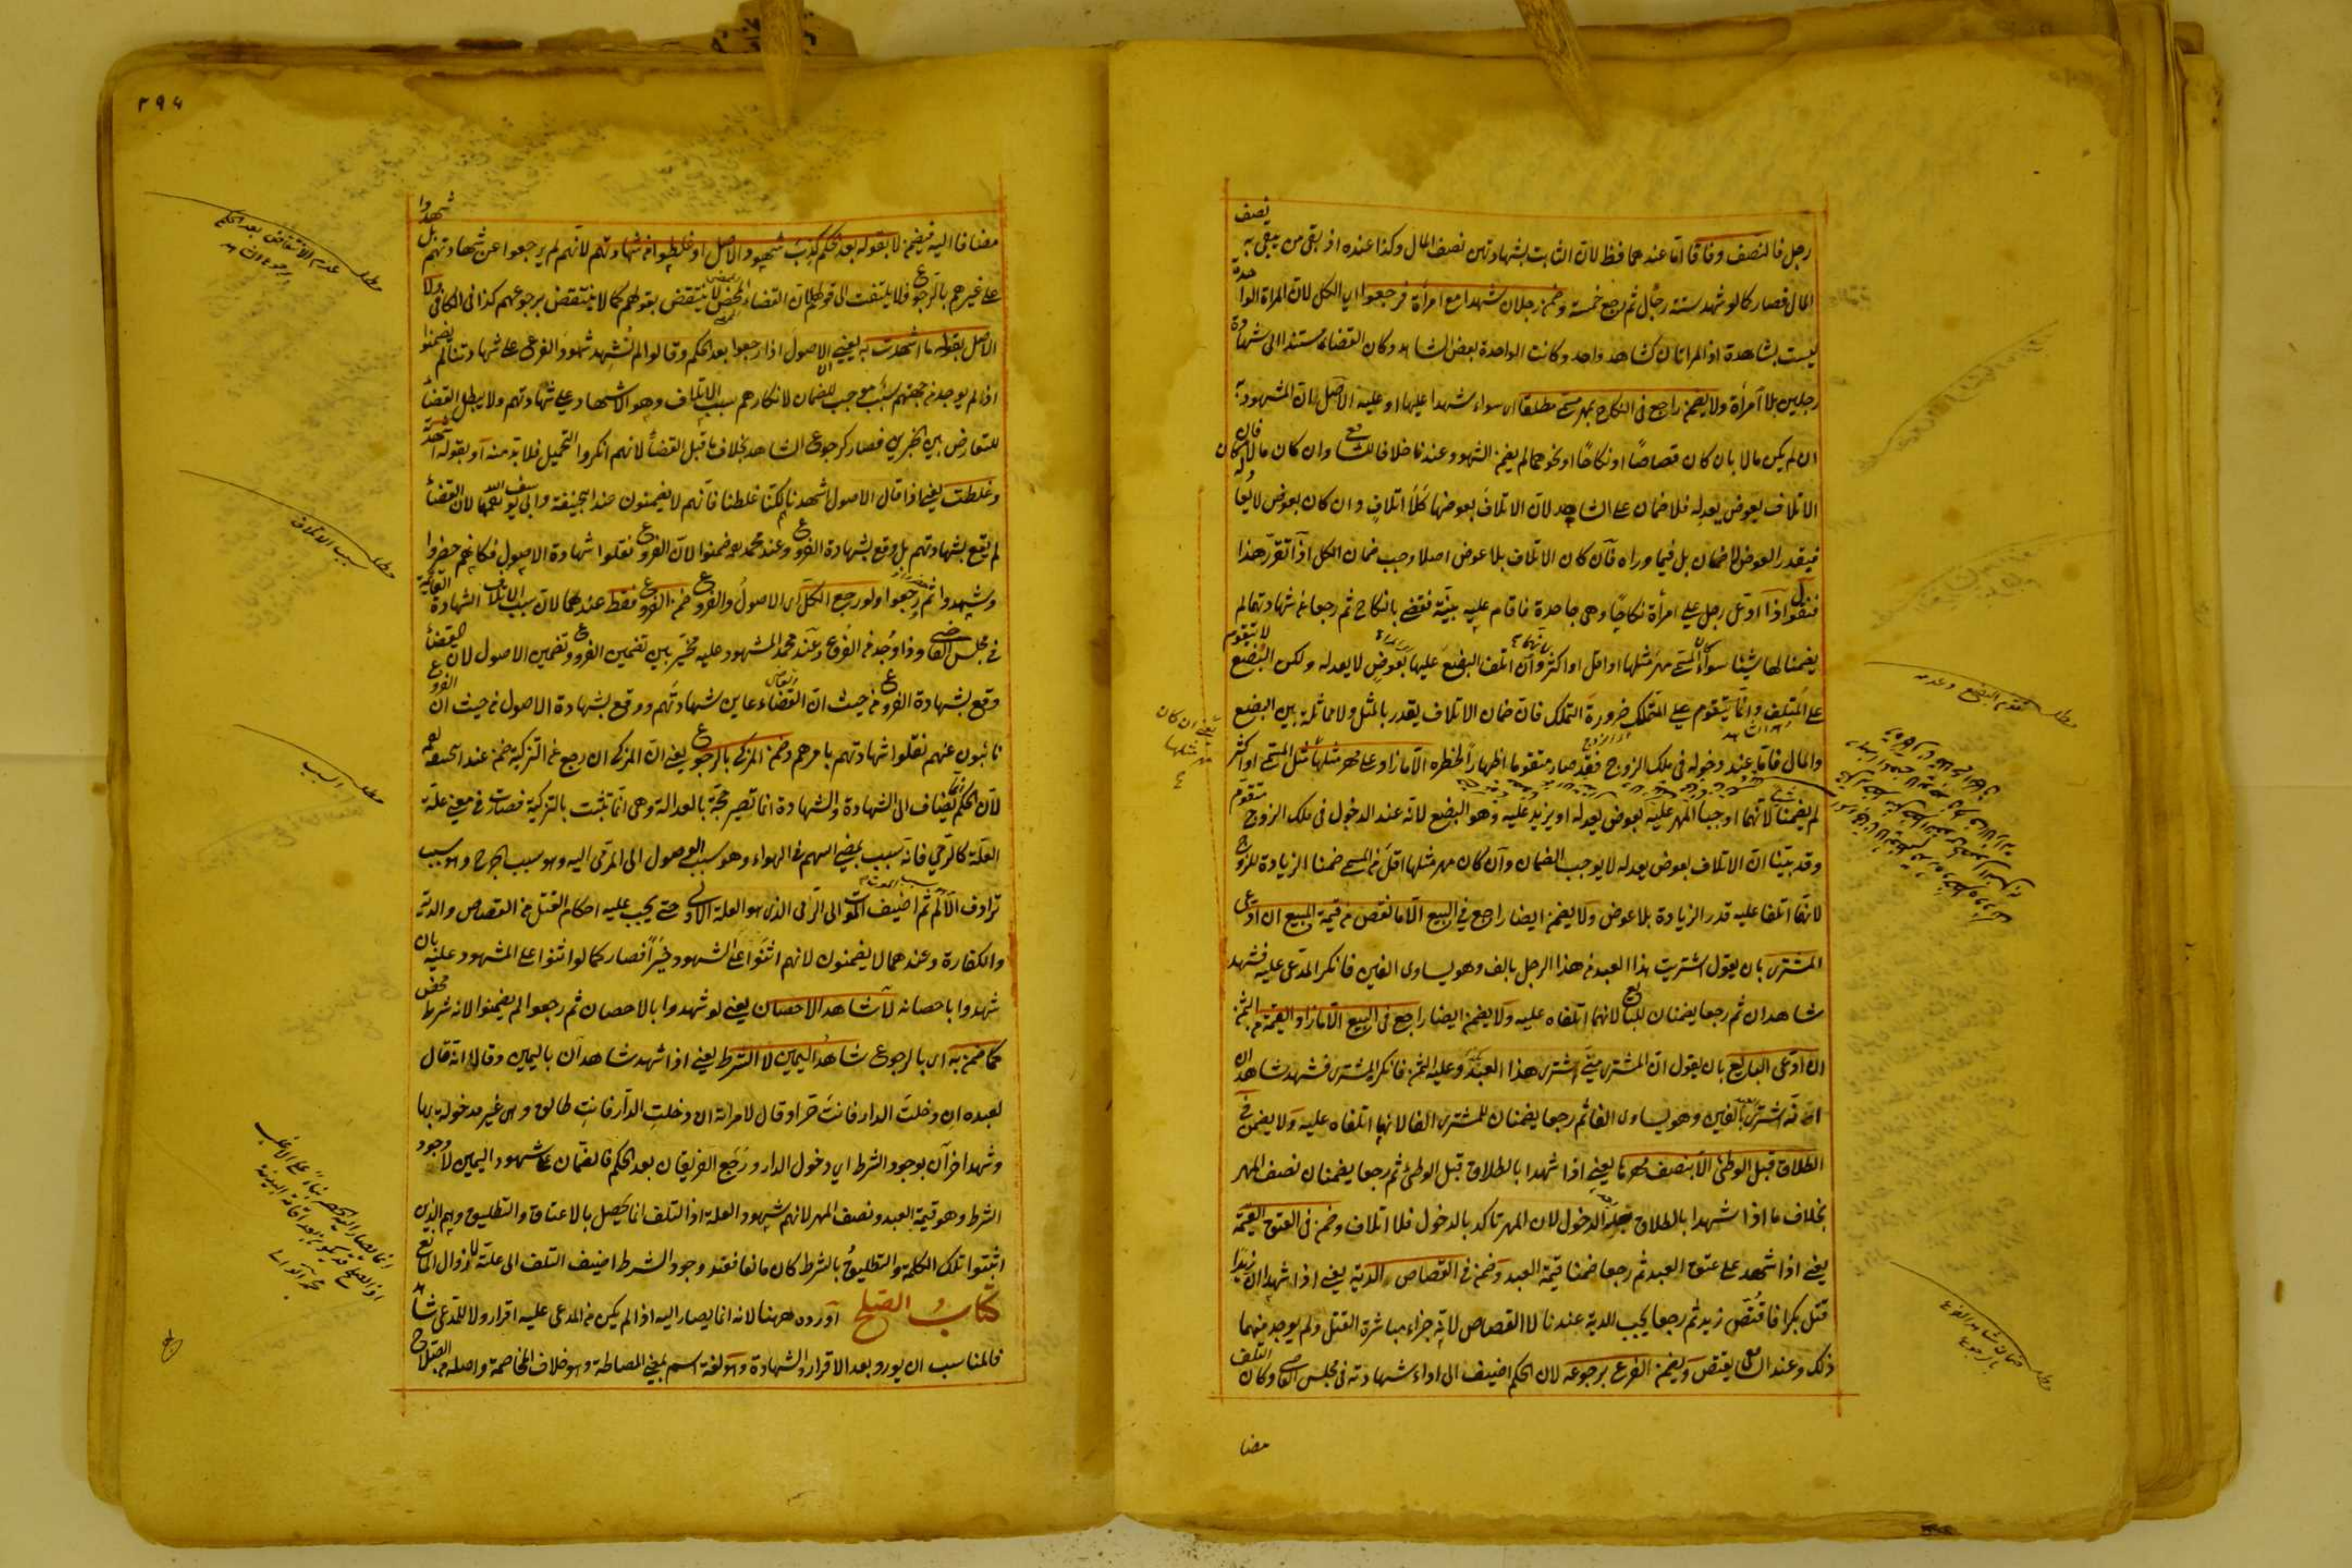 رجل فالنصف وفاقا امّا عندهما فظ لانّ الثابت بشهادتهن نصف المال وكذا عنده اذ بقى من يبقى به نصف
المال فصار كما لو شهد ستة رجال ثم رجع خمسة وضمن رجلان شهدا مع امرأة فرجعوا اي الكل لانّ المراة الواحدة
ليست بشاهدة اذ المراتان كشاهد واحد وكانت الواحدة بعض الشاهد وكان القضاء مستندا الى شهادة
رجلين بلا امرأة ولا يضمن راجع في النكاح بمهر مسمى مطلقا اي سواء شهدا عليها او عليه الاصل ان المشهود به
ان لم يكن مالا بان كان قصاصًا او نكاحًا او نحوهما لم يضمن الشهود عندنا خلافا للشافعي وان كان مالا فان كان
الاتلاف بعوض يعدله فلا ضمان على الشاهد لانّ الاتلاف بعوض كلا اتلاف وان كان بعوض لا يعادله
فبقدر العوض لا ضمان بل فيما وراه فان كان الاتلاف بلا عوض اصلا وجب ضمان الكل اذا تقرر هذا
فنقول اذا ادّعى رجل على امرأة نكاحًا وهي جاحدة فاقام عليه بيّنة فقضى بالنكاح ثم رجعا عن شهادتهما لم
يضمنا لها شيئا سواء كان المسمى مهر مثلها او اقل او اكثر وان اتلفا البضع عليها بعوض لا يعدله ولكن البضع لا يتقوم
على المتلف وانما يتقوم على المتملك ضرورة التملك فان ضمان الاتلاف يقدر بالمثل ولا مماثلة بين البضع
والمال فاما عند دخوله في ملك الزوج فقد صار متقوما اظهارا لخطره الا ما زاد على مهر مثلها مثل المسمى او اكثر
لم يضمنا شيئا لانهما اوجبا المهر عليه بعوض يعدله او يزيد عليه وهو البضع لانه عند الدخول في ملك الزوج متقوم
وقد بيّنا انّ الاتلاف بعوض يعدله لا يوجب الضمان وان كان مهر مثلها اقل من المسمى ضمنا الزيادة للزوج
لانهما اتلفا عليه قدر الزيادة بلا عوض ولا يضمن ايضا راجع في البيع الّا ما نقص من قيمة المبيع ان ادّعى
المشترى بان يقول اشتريت هذا العبد من هذا الرجل بالف وهو يساوى الفين فانكر المدعى عليه فشهد
شاهدان ثم رجعا يضمنان للبايع لانهما اتلفاه عليه ولا يضمن ايضا راجع في البيع الّا ما زاد القيمة من الثمن
ان ادّعى البايع بان يقول انّ المشترى منّي اشترى هذا العبد وعليه الثمن فانكر المشترى فشهد شاهدان
انه اشترى بالفين وهو يساوى الفا ثم رجعا يضمنان للمشترى الفا لانهما اتلفاه عليه ولا يضمن في
الطلاق قبل الوطئ الّا بنصف مهرها يعني اذا شهدا بالطلاق قبل الوطئ ثم رجعا يضمنان نصف المهر
بخلاف ما اذا شهدا بالطلاق بعد الدخول لان المهر تاكد بالدخول فلا اتلاف وضمن في العتق القيمة
يعني اذا شهد على عتق العبد ثم رجعا ضمنا قيمة العبد وضمن في القصاص الدية يعني اذا شهدا ان زيدا
قتل بكرا فاقتص زيد ثم رجعا يجب الدية عندنا لا القصاص لانه جزاء مباشرة القتل ولم يوجد منهما
ذلك وعند الشافعي يقتص ويضمن الفرع برجوعه لان الحكم اضيف الى اداء شهادته في مجلس القاضي وكان التلف
مضا
يعني ان كان
مهر مثلها
مطلب تقوم البضع وعدمه
مطلب ضمان شاهد الفرع
بالرجوع
٢٩٤
مضافا اليه فيضمن لا بقوله بعد حكم كذب شهود الاصل او غلطوا في شهادتهم لانهم لم يرجعوا عن شهادتهم بل شهدوا
على غيرهم بالرجوع فلا يلتفت الى قولهم لان القضاء الممضى لا ينتقض بقولهم كما لا ينتقض برجوعهم كذا في الكافي ولا
الاصل بقوله ما اشهدت به يعني الاصول اذا رجعوا بعد الحكم وقالوا لم نشهد شهود الفرع على شهادتنا لم يضمنوا
اذ لم يوجد من جهتهم سبب موجب للضمان لانكارهم سبب الاتلاف وهو الاشهاد على شهادتهم ولا يبطل القضاء
للتعارض بين الخبرين فصار كرجوع الشاهد بخلاف ما قبل القضاء لانهم انكروا التحميل فلا بد منه او بقوله اشهدته
وغلطت يعني اذا قال الاصول اشهدناهم لكنّا غلطنا فانهم لا يضمنون عند ابي حنيفة وابي يوسف رحمهما الله لان القضاء
لم يقع بشهادتهم بل وقع بشهادة الفروع وعند محمد رحمه ضمنوا لانّ الفروع نقلوا شهادة الاصول فكانهم حضروا
وشهدوا ثم رجعوا ولو رجع الكل اي الاصول والفروع ضمن الفروع فقط عندهما لان سبب الاتلاف الشهادة القائمة
في مجلس القاضي وذا وجد من الفروع وعند محمد المشهود عليه مخيّر بين تضمين الفروع وتضمين الاصول لان القضاء
وقع بشهادة الفروع من حيث ان القضاء عاين شهادتهم ووقع بشهادة الاصول من حيث ان الفروع
نائبون عنهم نقلوا شهادتهم بامرهم وضمن المزكى بالرجوع يعني انّ المزكى ان رجع عن التزكية ضمن عند ابي حنيفة رحمه
لان الحكم انما يضاف الى الشهادة والشهادة انما تصير حجة بالعدالة وهي انما تثبت بالتزكية فصارت في معنى علّة
العلّة كالرمي فانه سبب لمضي السهم في الهواء وهو سبب الوصول الى المرمى اليه وهو سبب الجرح وهو سبب
ترادف الآلام ثم اضيف الموت الى الرامى الذي هو العلة الاولى حتى يجب عليه احكام القتل من القصاص والدية
والكفارة وعندهما لا يضمنون لانهم اثنوا على الشهود خيرا فصار كما لو اثنوا على المشهود عليه بان
شهدوا باحصانه لا شاهد الاحصان يعني لو شهدوا بالاحصان ثم رجعوا لم يضمنوا لانه شرط محض
كما ضمن به اي بالرجوع شاهد اليمين لا الشرط يعني اذا شهد شاهدان باليمين وقالا انه قال
لعبده ان دخلت الدار فانت حر او قال لامراته ان دخلت الدار فانت طالق وهي غير مدخول بها
وشهد اخران بوجود الشرط اي دخول الدار ورجع الفريقان بعد الحكم فالضمان على شهود اليمين لا وجود
الشرط وهو قيمة العبد ونصف المهر لانهم شهود العلة اذ التلف انما يحصل بالاعتاق والتطليق وهم الذين
اثبتوا تلك الكلمة والتطليق بالشرط كان مانعا فعند وجود الشرط اضيف التلف الى علته لا زوال المانع
كتاب الصلح اورده ههنا لانه انما يصار اليه اذا لم يكن من المدعى عليه اقرار ولا للمدعى شاهد
فالمناسب ان يورد بعد الاقرار والشهادة وهو لغة اسم بمعنى المصالحة وهو خلاف المخاصمة واصله من الصلاح
مطلب عدم الانتقاض بعد الحكم
برجوع الشاهد
مطلب سبب الاتلاف
مطلب السبب